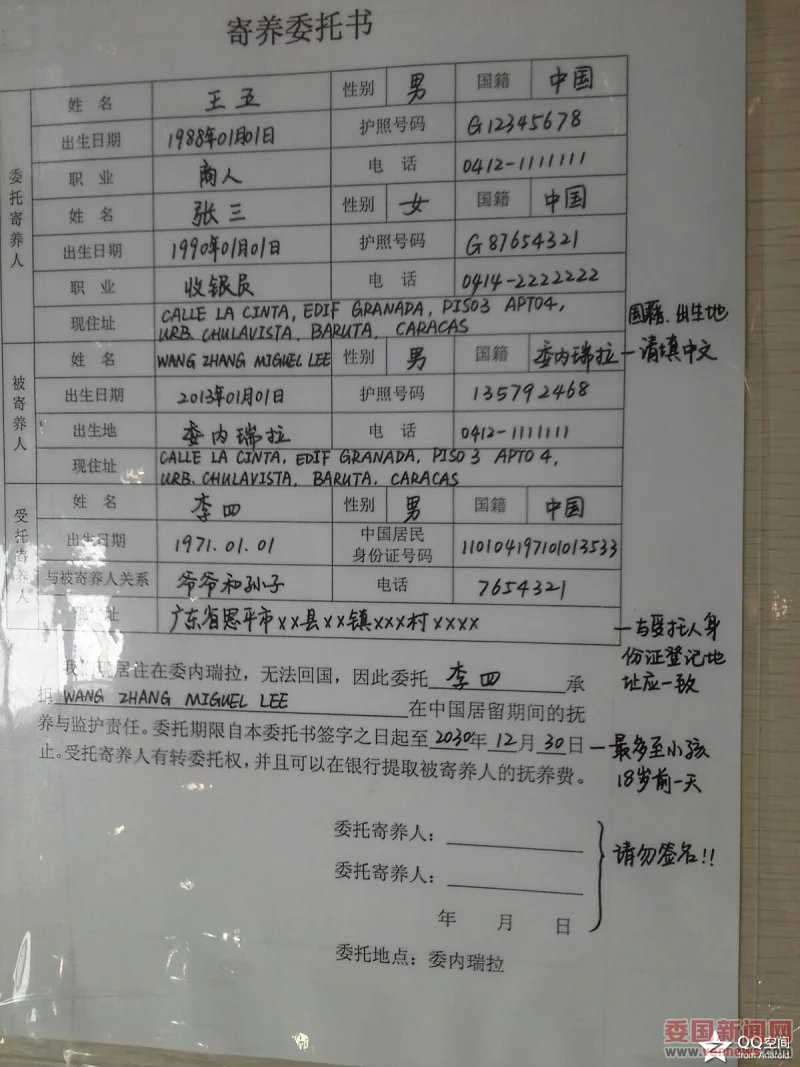 寄养委托书
委托寄养人
姓 名 王五 性别 男 国籍 中国
出生日期 1988年01月01日 护照号码 G12345678
职 业 商人 电 话 0412-1111111
姓 名 张三 性别 女 国籍 中国
出生日期 1990年01月01日 护照号码 G87654321
职 业 收银员 电 话 0414-2222222
现住址 CALLE LA CINTA, EDIF GRANADA, PISO3 APTO4,
URB. CHULAVISTA, BARUTA, CARACAS
国籍、出生地
请填中文
被寄养人
姓 名 WANG ZHANG MIGUEL LEE 性别 男 国籍 委内瑞拉
出生日期 2013年01月01日 护照号码 135792468
出生地 委内瑞拉 电 话 0412-1111111
现住址 CALLE LA CINTA, EDIF GRANADA, PISO 3 APTO 4,
URB. CHULAVISTA, BARUTA, CARACAS
受托寄养人
姓 名 李四 性别 男 国籍 中国
出生日期 1971.01.01 中国居民
身份证号码 110104197101013533
与被寄养人关系 爷爷和孙子 电话 7654321
址 广东省恩平市××县××镇×××村××××
与受托人身
份证登记地
址应一致
我 现居住在委内瑞拉，无法回国，因此委托 李四 承
担 WANG ZHANG MIGUEL LEE 在中国居留期间的抚
养与监护责任。委托期限自本委托书签字之日起至 2030年 12 月 30 日
止。受托寄养人有转委托权，并且可以在银行提取被寄养人的抚养费。
最多至小孩
18岁前一天
委托寄养人：
委托寄养人：
请勿签名!!
年 月 日
委托地点：委内瑞拉
委国新闻网
QQ空间
from Android